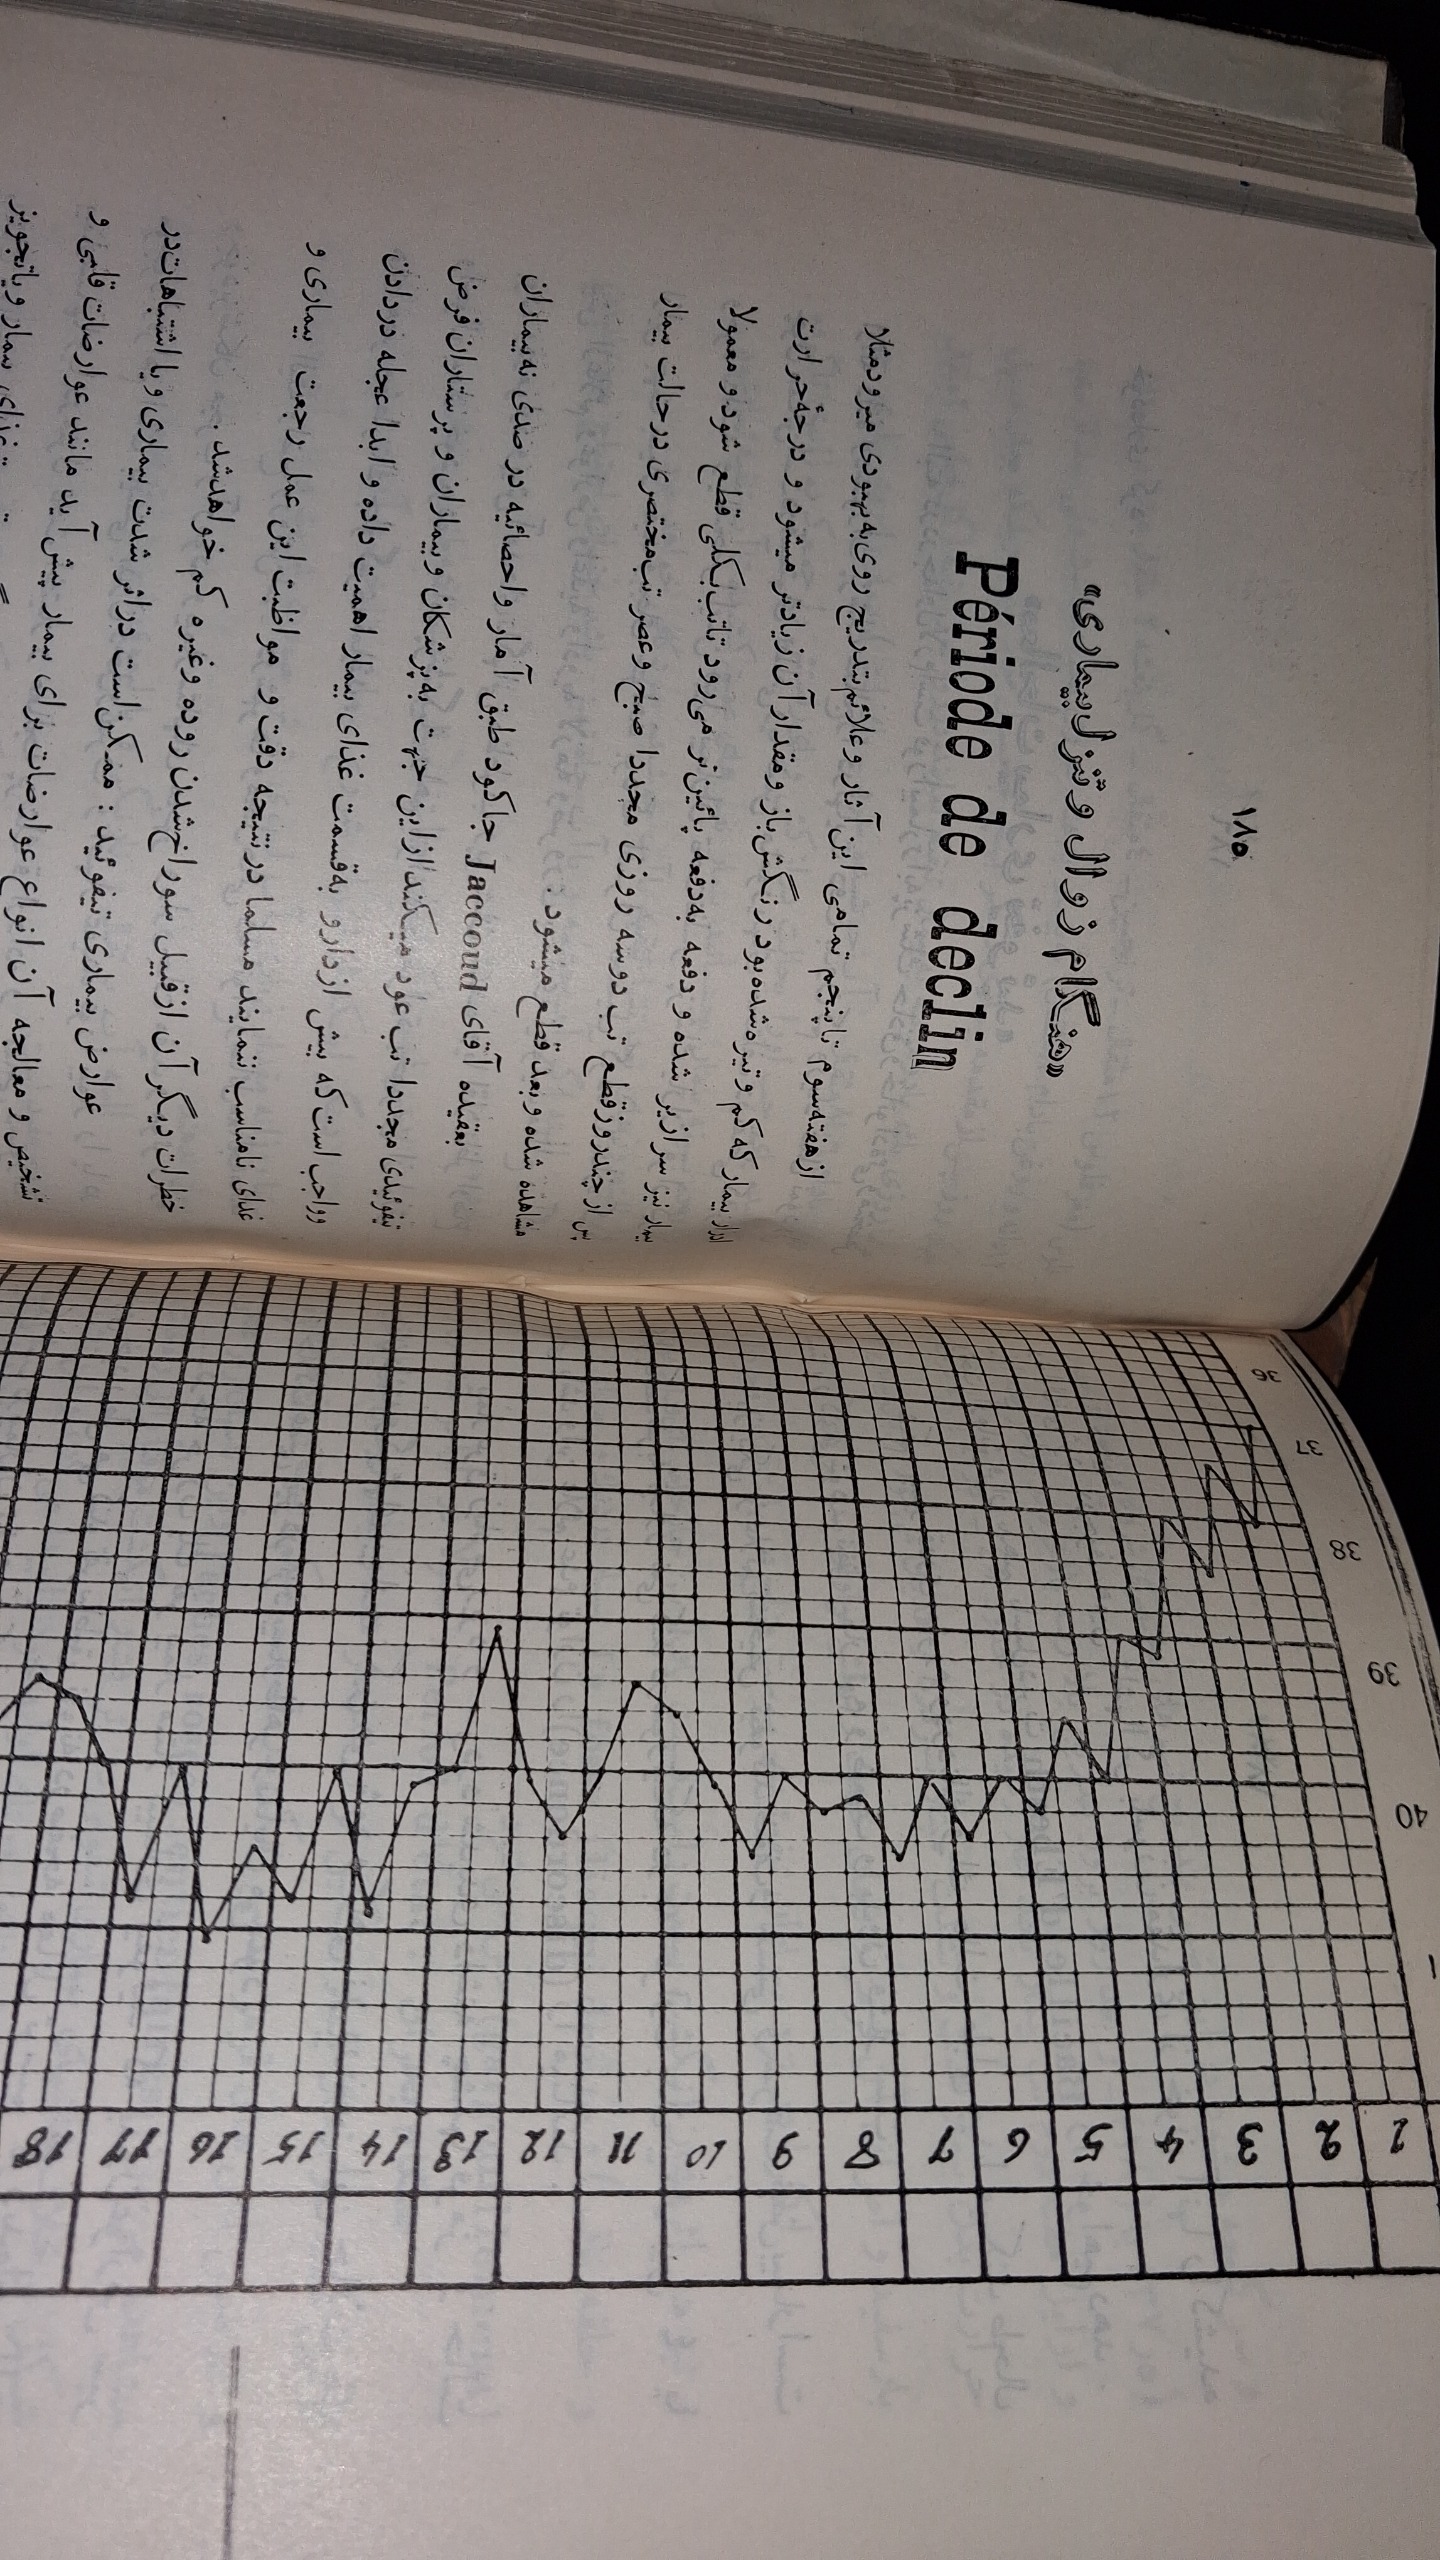 ۱۸۵
«هنگام زوال و تنزل بیماری»
Période de declin
از هفته سوم تا پنجم تمامی این آثار و علائم بتدریج روی به بهبودی میرود مثلا
ادرار بیمار که کم و تیره شده بود رنگش باز و مقدار آن زیادتر میشود و درجهٔ حرارت
بیمار نیز سرازیر شده و دفعه به دفعه پائین‌تر می‌رود تا تب بکلی قطع شود و معمولا
پس از چند روز قطع تب دو سه روزی مجددا صبح و عصر تب مختصری در حالت بیمار
مشاهده شده و بعد قطع میشود.
بعقیده آقای Jaccoud جاکود طبق آمار و احصائیه در صدی نه بیماران
تیفوئیدی مجددا تب عود میکند از این جهت به پزشکان و بیماران و پرستاران فرض
و واجب است که بیش از دارو به قسمت غذای بیمار اهمیت داده و ابدا عجله در دادن
غذای نامناسب ننمایند مسلما در نتیجه دقت و مواظبت این عمل رجعت بیماری و
خطرات دیگر آن از قبیل سوراخ شدن روده و غیره کم خواهد شد.
عوارض بیماری تیفوئید : ممکن است در اثر شدت بیماری و یا اشتباهات در
تشخیص و معالجه آن انواع عوارضات برای بیمار پیش آید مانند عوارضات قلبی و
غذای بیمار و یا تجویز
36
37
38
39
40
1
1 2 3 4 5 6 7 8 9 10 11 12 13 14 15 16 17 18